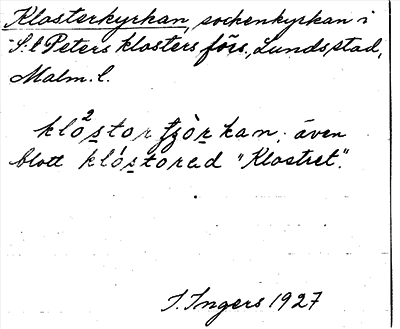 Klosterkyrkan, sockenkyrkan i
S:t Peters klosters förs., Lunds stad,
Malm. l.
klo²storţjòrkan; även
blott klóstorəd "Klostret".
I. Ingers 1927